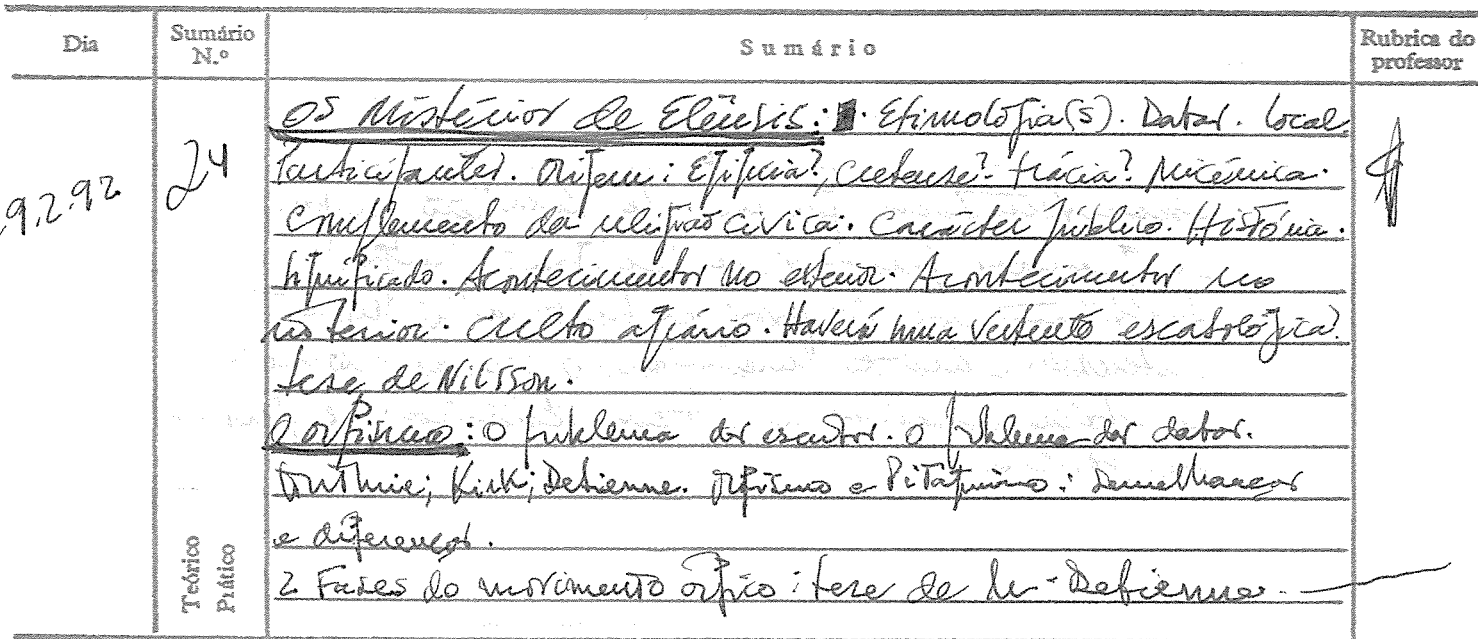 Dia
Sumário N.º
Sumário
Rubrica do professor
9.2.92
24
Os Mistérios de Elêusis: Etimologia(s). Datas. Local
Participantes. Origem: Egípcia?, cretense? trácia? Micénica.
Complemento da religião cívica. Carácter público. História.
Significado. Acontecimentos no exterior. Acontecimentos no
interior. Culto agrário. Haverá uma vertente escatológica?
tese de Nilsson.
O orfismo: O problema dos escritos. O problema das datas.
Guthrie; Kirk; Detienne. Orfismo e Pitagorismo: semelhanças
e diferenças.
2 Fases do movimento órfico: tese de M. Detienne.
Teórico
Prático